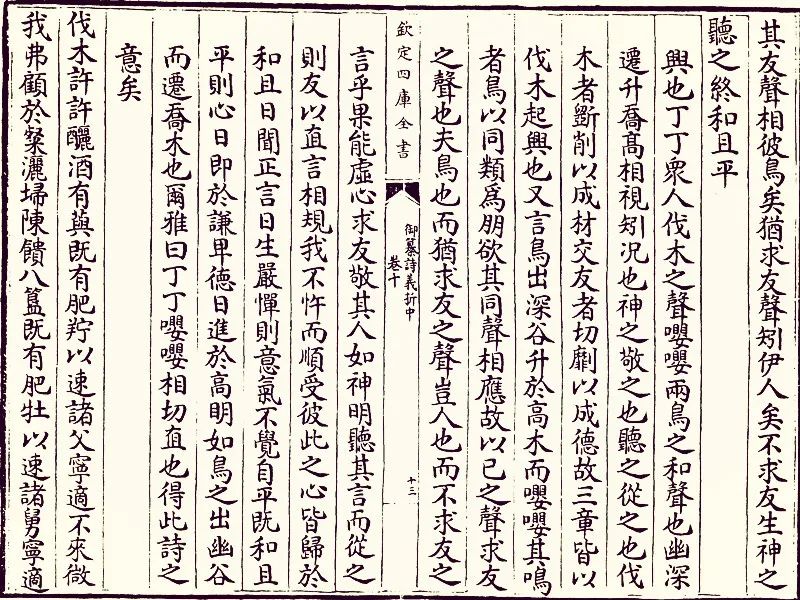 其友聲相彼鳥矣猶求友聲矧伊人矣不求友生神之
聽之終和且平
興也丁丁衆人伐木之聲嚶嚶兩鳥之和聲也幽深
遷升喬高相視矧况也神之敬之也聽之從之也伐
木者斲削以成材交友者切劘以成德故三章皆以
伐木起興也又言鳥出深谷升於高木而嚶嚶其鳴
者鳥以同類為朋欲其同聲相應故以已之聲求友
之聲也夫鳥也而猶求友之聲豈人也而不求友之
欽定四庫全書
御纂詩義折中
卷十
十三
言乎果能虛心求友敬其人如神明聽其言而從之
則友以直言相規我不忤而順受彼此之心皆歸於
和且日聞正言日生嚴憚則意氣不覺自平既和且
平則心日即於謙卑德日進於高明如鳥之出幽谷
而遷喬木也爾雅曰丁丁嚶嚶相切直也得此詩之
意矣
伐木許許釃酒有藇既有肥羜以速諸父寧適不來微
我弗顧於粲灑埽陳饋八簋既有肥牡以速諸舅寧適